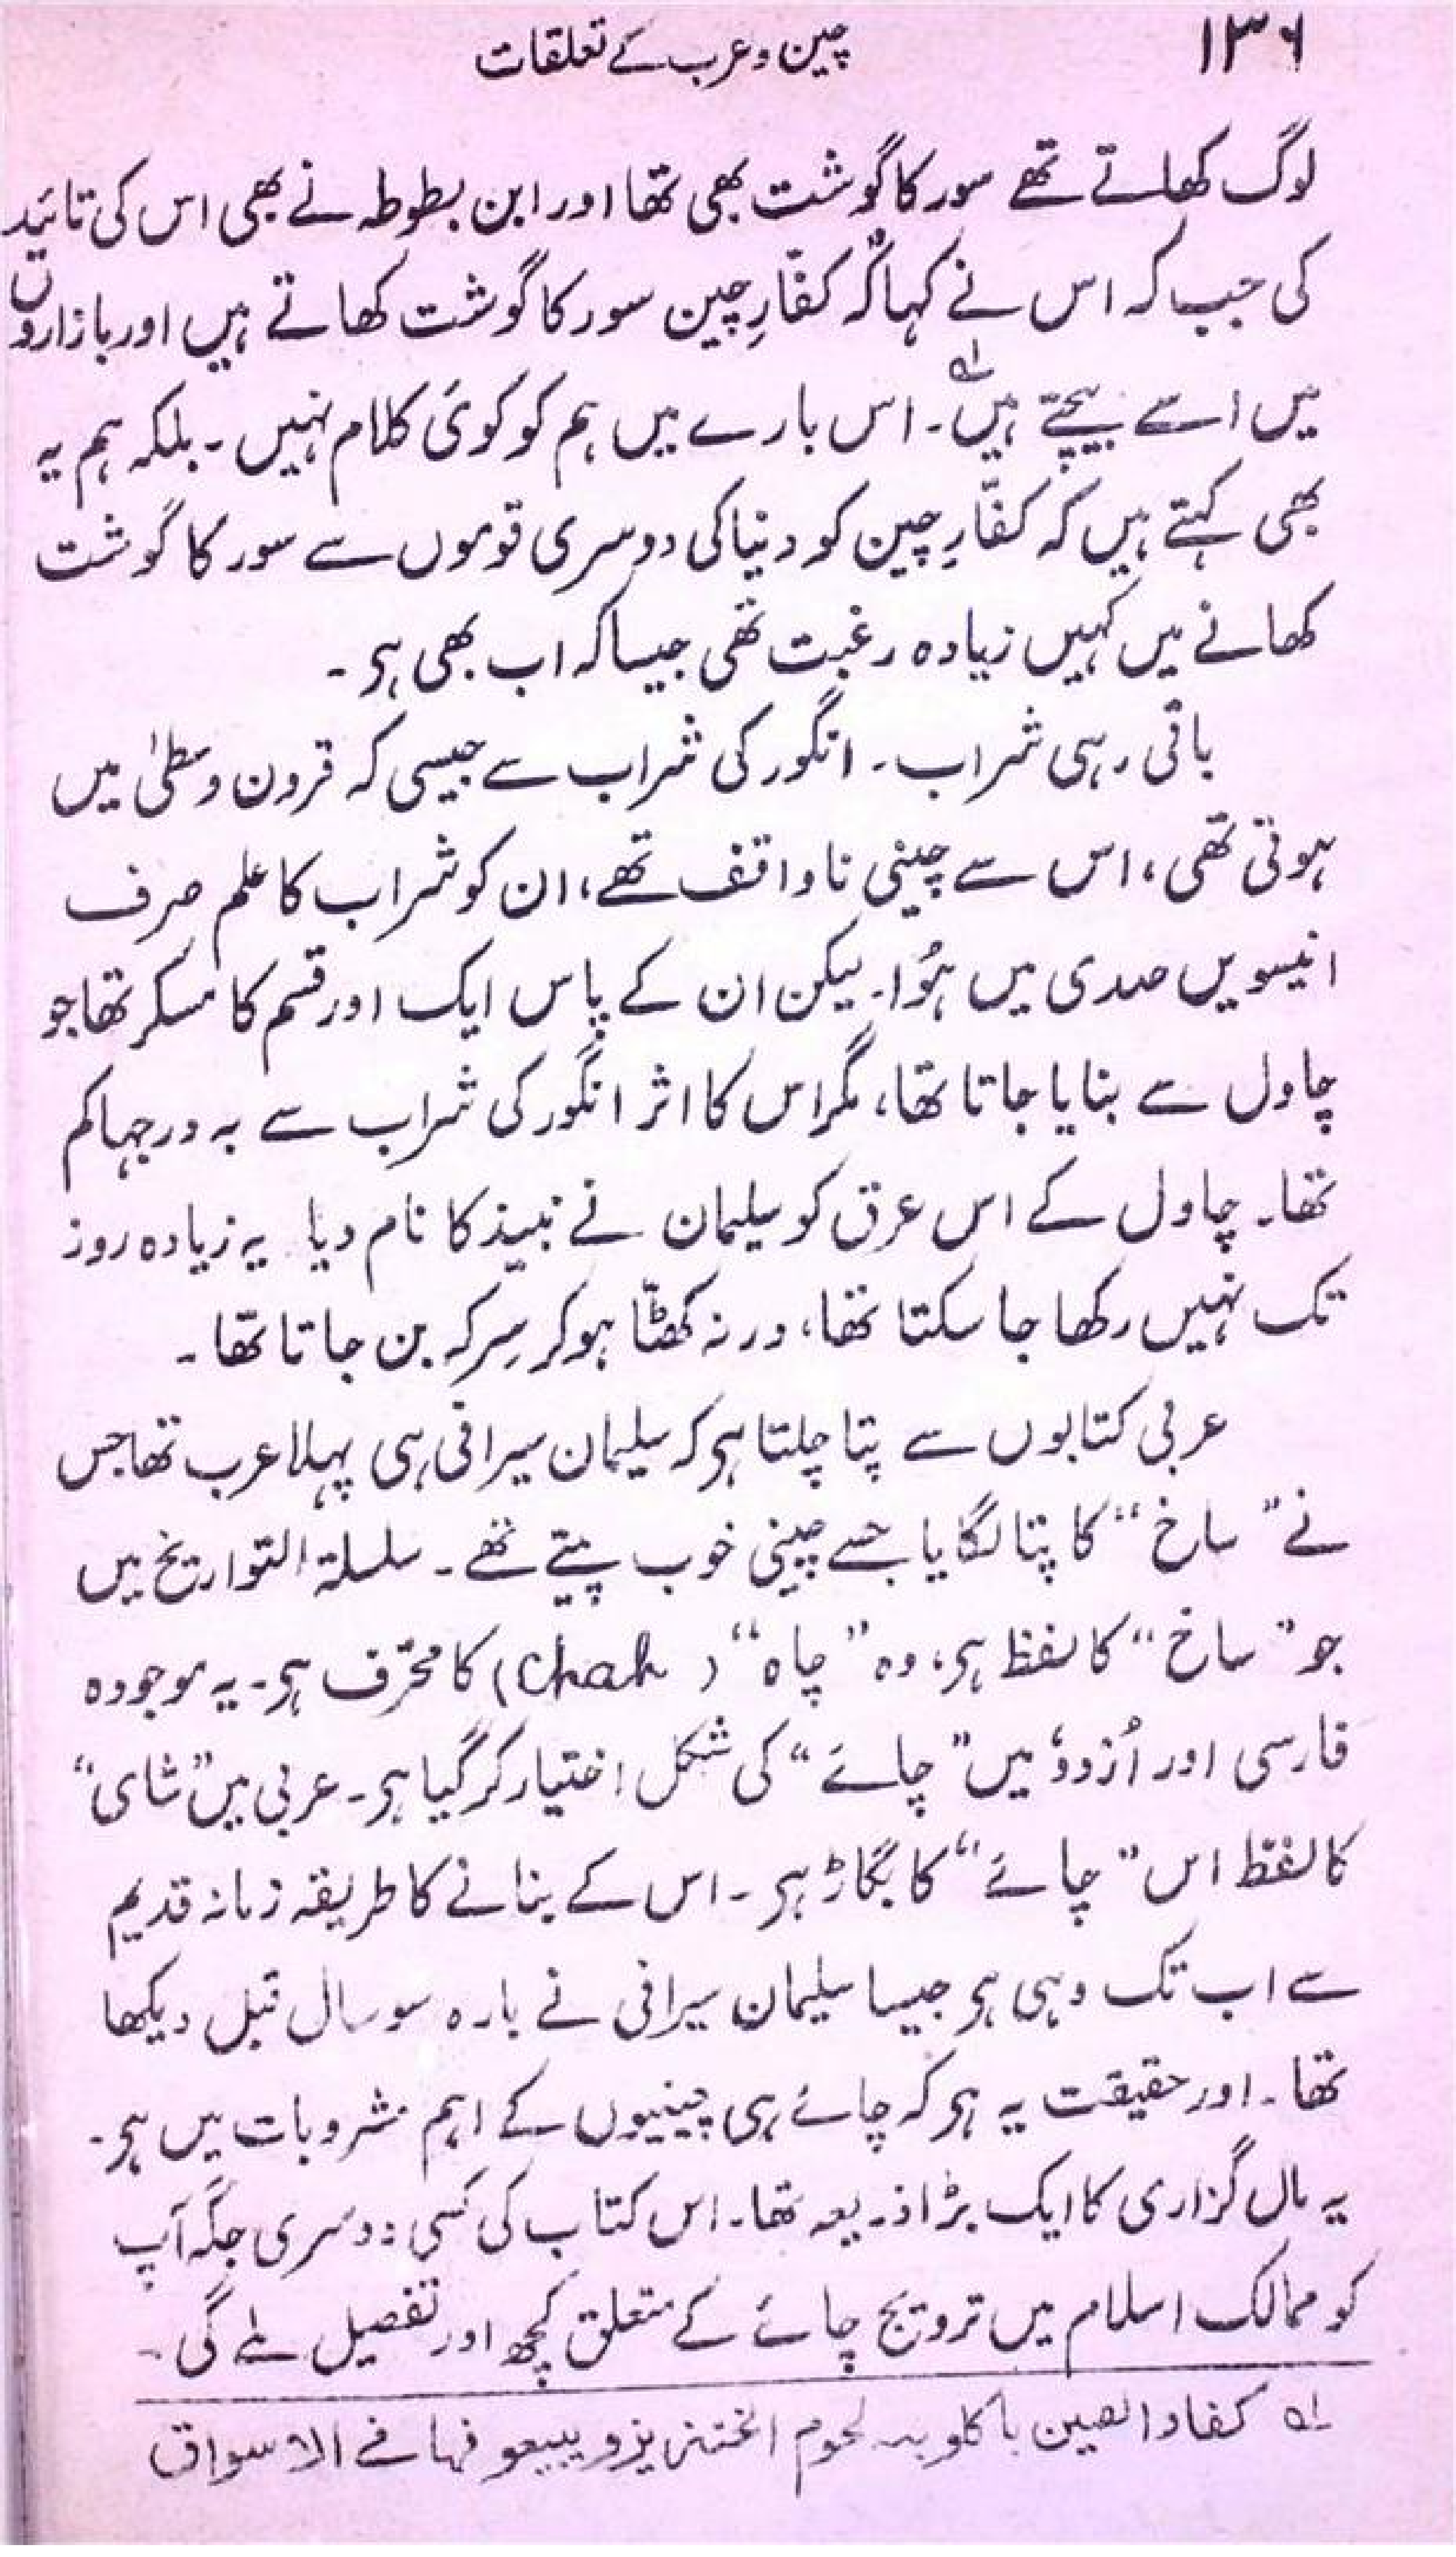 ۱۳۶
چین و عرب کے تعلقات
لوگ کھاتے تھے سور کا گوشت بھی تھا اور ابن بطوطہ نے بھی اس کی تائید
کی جب کہ اس نے کہا کہ کفّارِ چین سور کا گوشت کھاتے ہیں اور بازاروں
میں اسے بیچتے ہیں۔ اس بارے میں ہم کو کوئی کلام نہیں۔ بلکہ ہم یہ
بھی کہتے ہیں کہ کفّارِ چین کو دنیا کی دوسری قوموں سے سور کا گوشت
کھانے میں کہیں زیادہ رغبت تھی جیسا کہ اب بھی ہر۔
باقی رہی شراب۔ انگور کی شراب سے جیسی کہ قرون وسطیٰ میں
ہوتی تھی، اس سے چینی ناواقف تھے، ان کو شراب کا علم صرف
انیسویں صدی میں ہُوا۔ لیکن ان کے پاس ایک اور قسم کا مسکر تھا جو
چاول سے بنایا جاتا تھا، مگر اس کا اثر انگور کی شراب سے بہ درجہا کم
تھا۔ چاول کے اس عرق کو سلیمان نے نبیذ کا نام دیا یہ زیادہ روز
تک نہیں رکھا جا سکتا تھا، ورنہ کھٹّا ہو کر سِرکہ بن جاتا تھا۔
عربی کتابوں سے پتا چلتا ہر کہ سلیمان سیرافی ہی پہلا عرب تھا جس
نے ”ساخ“ کا پتا لگایا جسے چینی خوب پیتے تھے۔ سلسلۃ التواریخ میں
جو ”ساخ“ کا لفظ ہر، وہ ”چاہ“ (Chah) کا محرّف ہر۔ یہ موجودہ
فارسی اور اُردوٗ میں ”چائے“ کی شکل اختیار کر گیا ہر۔ عربی میں ”شای“
کا لفظ اس ”چائے“ کا بگاڑ ہر۔ اس کے بنانے کا طریقہ زمانہ قدیم
سے اب تک وہی ہر جیسا سلیمان سیرافی نے بارہ سو سال قبل دیکھا
تھا۔ اور حقیقت یہ ہر کہ چائے ہی چینیوں کے اہم مشروبات میں ہر۔
یہ مال گزاری کا ایک بڑا ذریعہ تھا۔ اس کتاب کی کسی دوسری جگہ آپ
کو ممالک اسلام میں ترویج چائے کے متعلق کچھ اور تفصیل ملے گی۔
لہ کفار الصین یاکلون لحوم الخنزیز و یبیعو فہا فے الاسواق